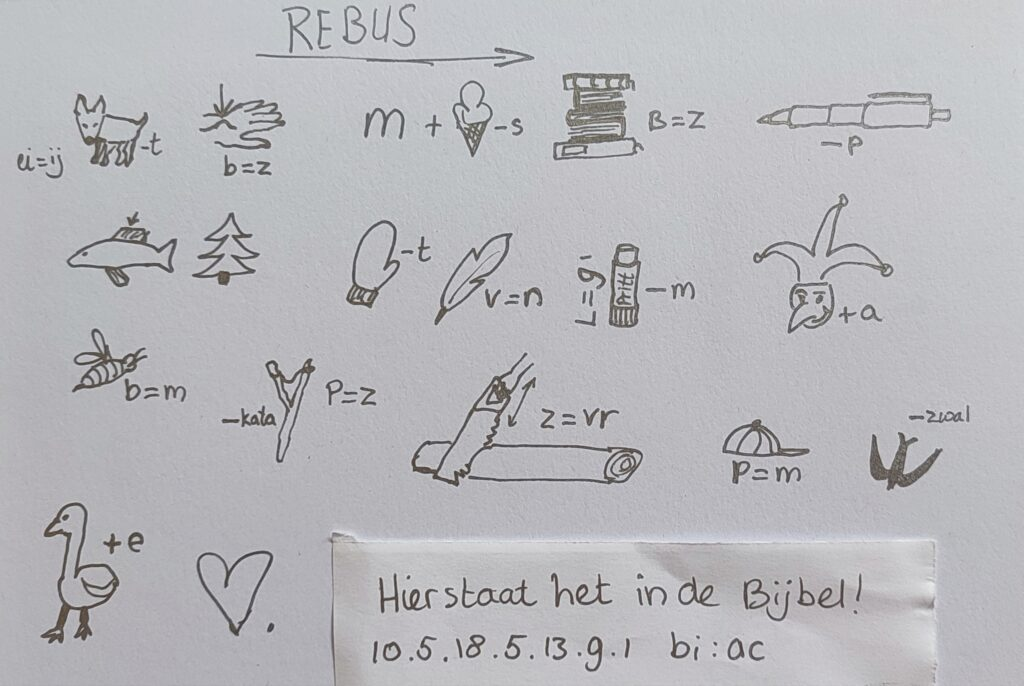 REBUS
ei=ij -t b=z m + -s B=Z -P
-t v=n L=g Pritt -m +a
b=m -kata P=Z z=vr P=m -zwal
+e .
Hier staat het in de Bijbel!
10.5.18.5.13.9.1 bi:ac